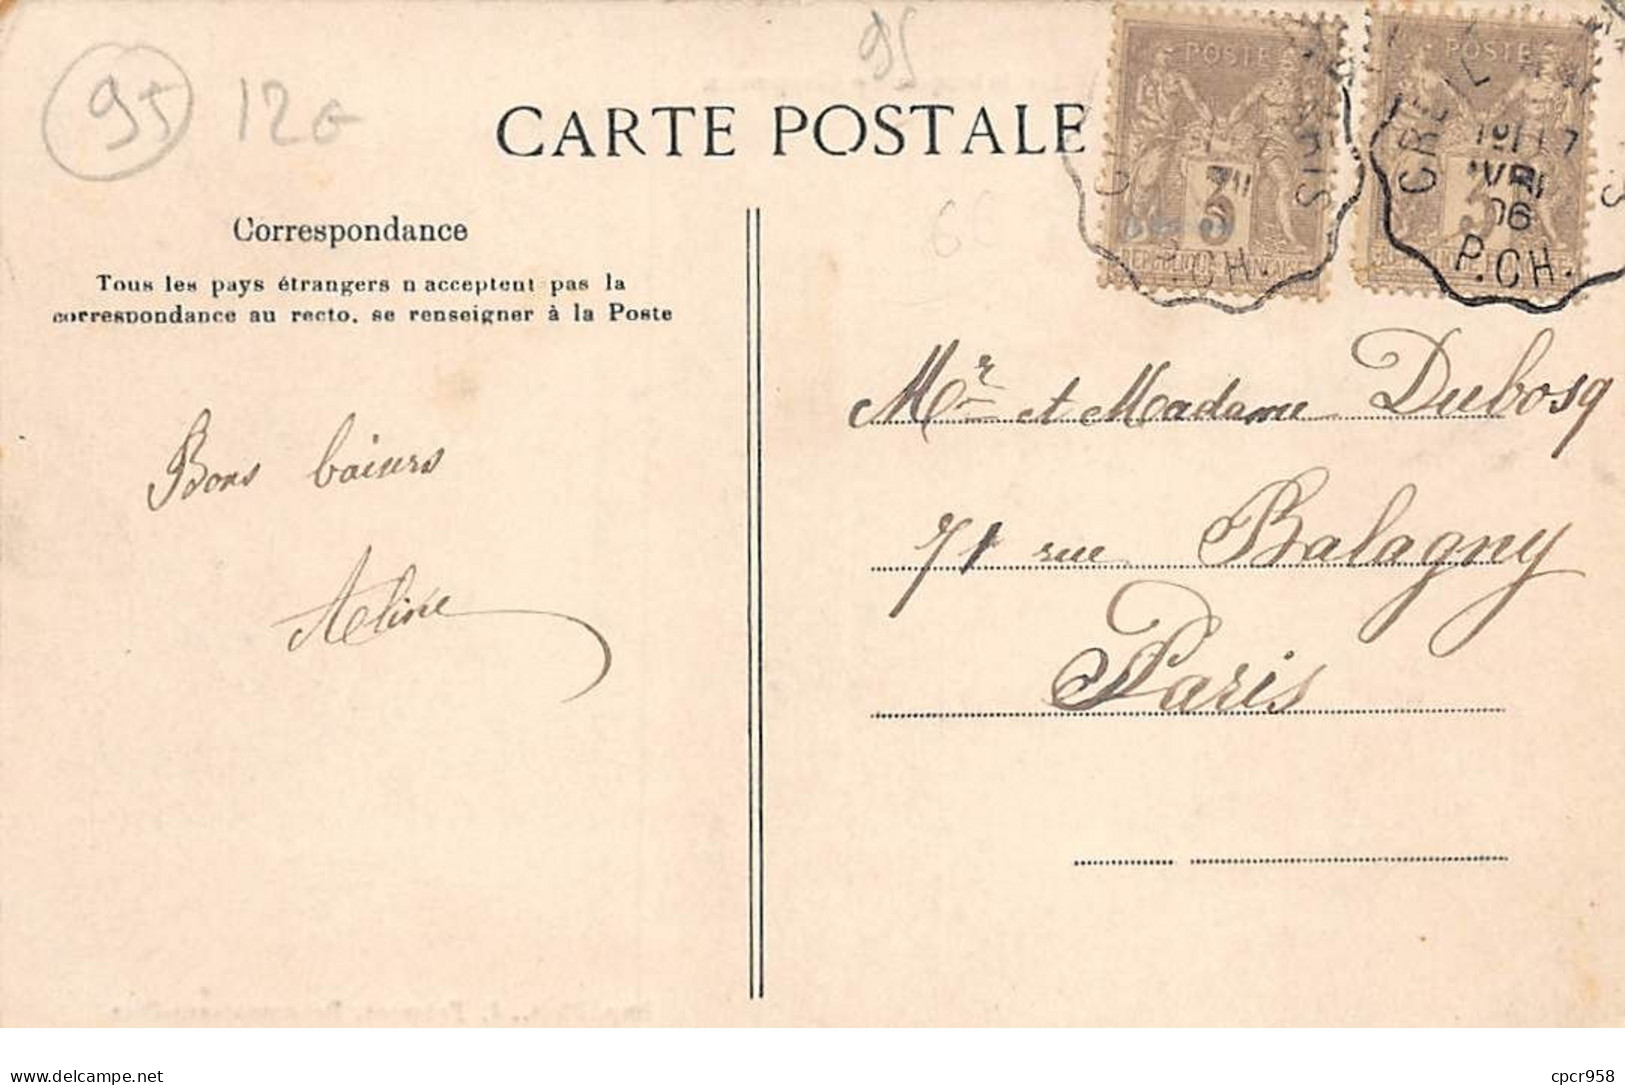 95
12€
95
CARTE POSTALE
POSTE
3
POSTE
3
CREIL
17
AVRIL
06
P.CH.
P.CH.
Correspondance
Tous les pays étrangers n acceptent pas la
correspondance au recto, se renseigner à la Poste
Bons baisers
Aline
Mr et Madame Dubosq
71 rue Balagny
Paris
delcampe.net
cpcr958